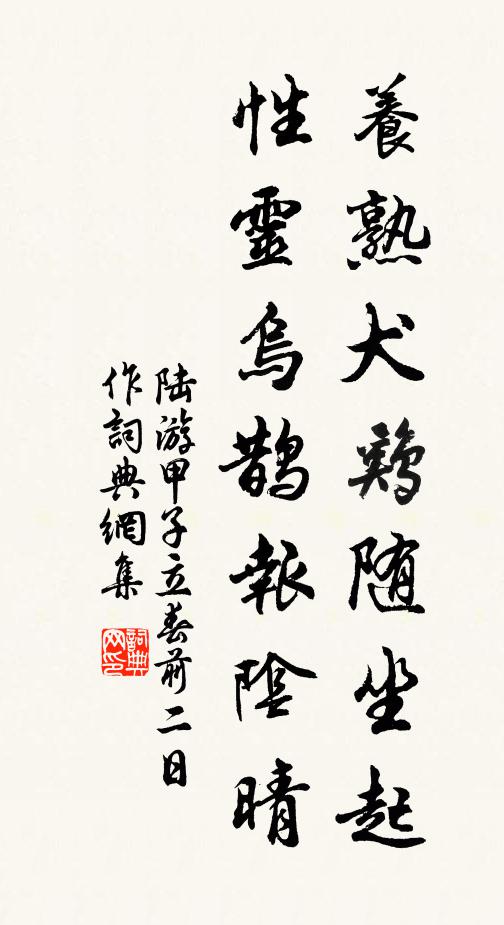 養熟犬鷄随坐起
性靈烏鵲報陰晴
陆游甲子立春前二日
作詞典網集
詞典
网印